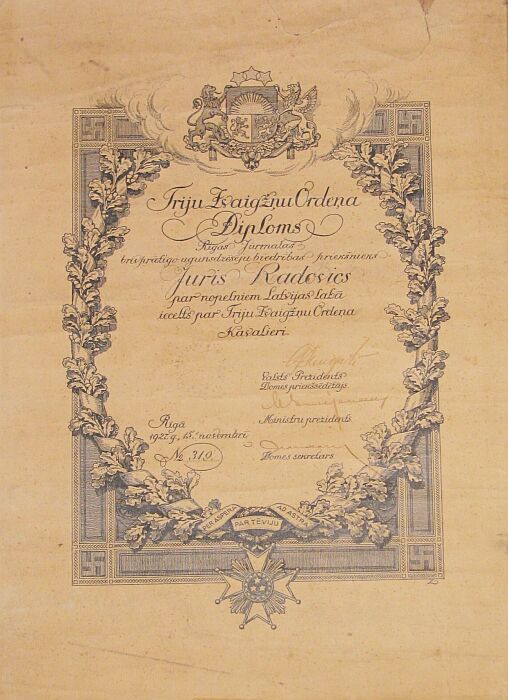 Triju Zvaigžņu Ordeņa
Diploms
Rīgas Jūrmalas
brīvprātīgo ugunsdzēsēju biedrības priekšnieks
Juris Radovics
par nopelniem Latvijas labā
iecelts par Triju Zvaigžņu Ordeņa
Kavalieri.
Valsts Prezidents
Domes priekšsēdētājs
Rīgā
Ministru prezidents
1927 g. 15. novembrī
№ 310.
Domes sekretārs
PER ASPERA AD ASTRA
PAR TĒVIJU